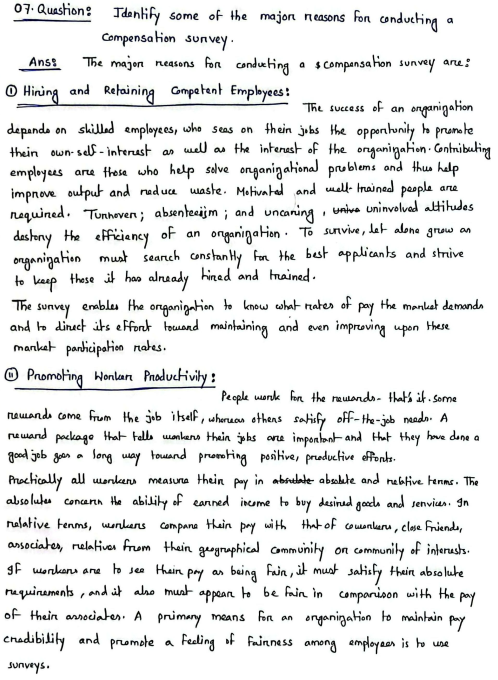 07. Question: Identify some of the major reasons for conducting a
compensation survey.
Ans: The major reasons for conducting a compensation survey are:
(I) Hiring and Retaining Competent Employees:
The success of an organization
depends on skilled employees, who seas on their jobs the opportunity to promote
their own-self-interest as well as the interest of the organization. Contributing
employees are those who help solve organizational problems and thus help
improve output and reduce waste. Motivated and well-trained people are
required. Turnover; absenteeijm; and uncaring, uninvolved attitudes
destory the efficiency of an organization. To survive, let alone grow an
organization must search constantly for the best applicants and strive
to keep those it has already hired and trained.
The survey enables the organization to know what rates of pay the market demands
and to direct its effort toward maintaining and even improving upon these
market participation rates.
(II) Promoting Worker Productivity:
People work for the rewards- that's it. Some
rewards come from the job itself, whereas others satisfy off-the-job needs. A
reward package that tells workers their jobs are important and that they have done a
good job goes a long way toward promoting positive, productive efforts.
Practically all workers measure their pay in absolute and relative terms. The
absolutes concern the ability of earned income to buy desired goods and services. In
relative terms, workers compare their pay with that of coworkers, close friends,
associates, relatives from their geographical community or community of interests.
If workers are to see their pay as being fair, it must satisfy their absolute
requirements, and it also must appear to be fair in comparison with the pay
of their associates. A primary means for an organization to maintain pay
credibility and promote a feeling of fairness among employees is to use
surveys.